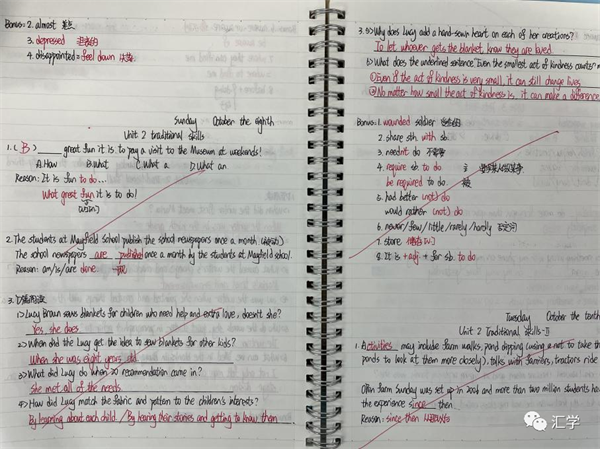 Bonus: 2. almost 差点
3. depressed 沮丧的
4. disappointed = feel down
Sunday October the eighth
Unit 2 traditional skills
1. ( B ) ____ great fun it is to pay a visit to the Museum at weekends!
A. How B. what C. What a D. What an
Reason: It is fun to do...
What great fun it is to do!
[U]
2. The students at Mayfield school publish the school newspapers once a month
The school newspapers are published once a month by the students at Mayfield school.
Reason: am/is/are done
3.
1> Lucy Brown sews blankets for children who need help and extra love, doesn't she?
Yes, she does
2> When did the Lucy get the idea to sew blankets for other kids?
When she was eight years old
3> What did Lucy do when 20 recommendation came in?
She met all of the needs
4> How did Lucy match the fabric and pattern to the children's interests?
By learning about each child / By hearing their stories and getting to know them
3. 5> Why does Lucy add a hand-sewn heart on each of her creations?
To let whoever gets the blanket know they are loved
6> What does the underlined sentence "Even the smallest act of kindness counts"
① Even if the act of kindness is very small, it can still change lives.
② No matter how small the act of kindness is, it can make a difference
Bonus: 1. wounded soldier
2. share sth with sb.
3. neednt do 不需要
4. require sb. to do
be required to do
5. had better (not) do
would rather (not) do
6. never / few / little / rarely / hardly
7. store
8. It is + adj + for sb. to do
Tuesday October the tenth
Unit 2 Traditional skills-II
1. Activities may include farm walks, pond dipping (using a net to take
ponds to look at them more closely), talks with farmers, tractors ride
Open Farm Sunday was set up in 2006 and more than two million students
the experience since then
Reason: since then 从那以后
汇学